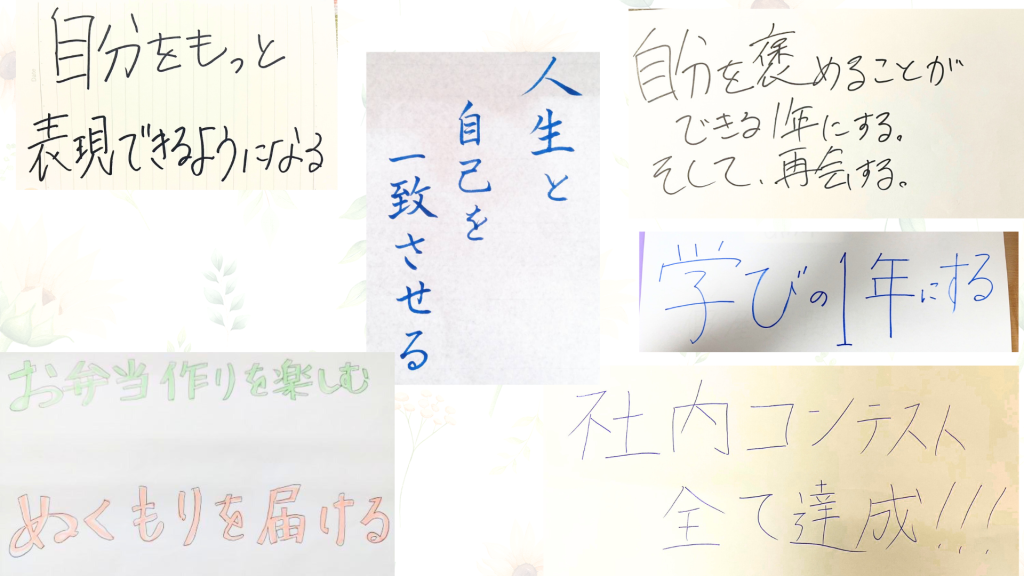 自分をもっと
表現できるようになる
人生と
自己を
一致させる
自分を褒めることが
できる1年にする。
そして、再会する。
学びの1年にする
お弁当作りを楽しむ
ぬくもりを届ける
社内コンテスト
全て達成!!!